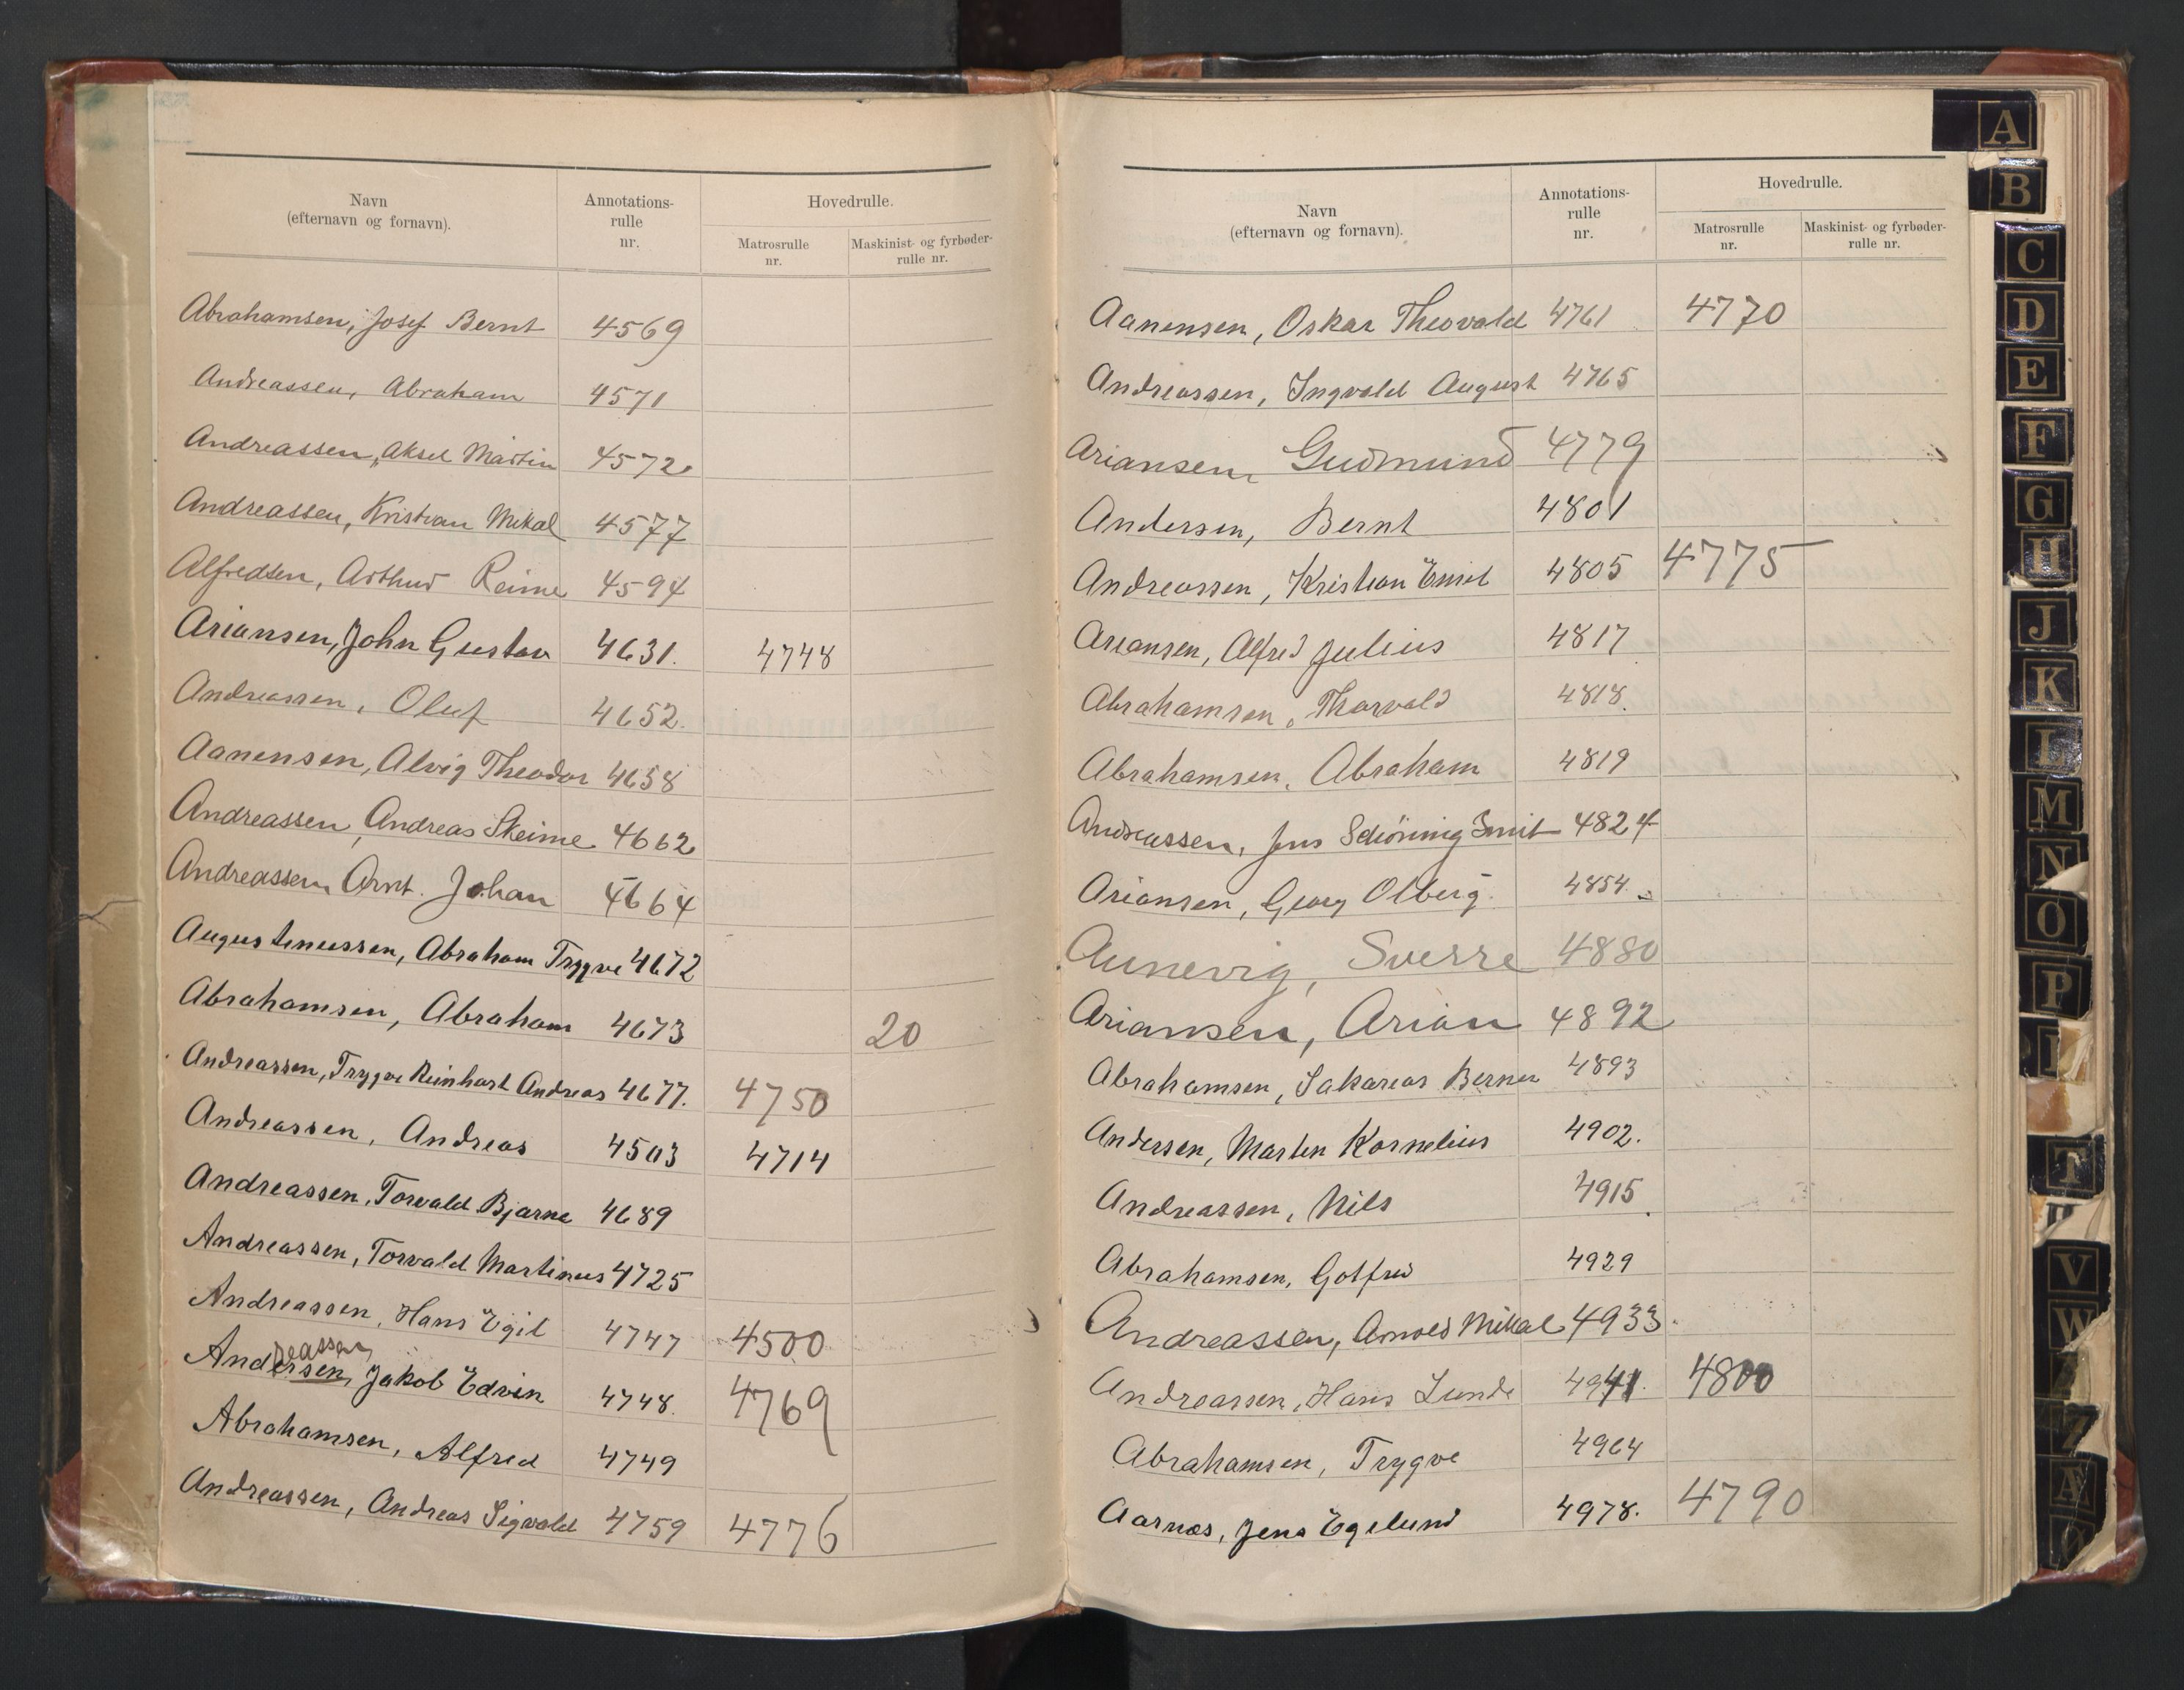 Navn
(efternavn og fornavn).
Annotations-
rulle
nr.
Hovedrulle.
Matrosrulle
nr.
Maskinist- og fyrbøder-
rulle nr.
Abrahamsen, Josef Bernt 4569
Andreassen, Abraham 4571
Andreassen, Aksel Martin 4572
Andreassen, Kristian Mikal 4577
Alfredsen, Arthur Reime 4594
Ariansen, John Gustav 4631. 4748
Andreassen, Oluf 4652.
Aanensen, Alvig Theodor 4658
Andreassen, Andreas Skeime 4662
Andreassen Arnt. Johan 4664
Augustinussen, Abraham Trygve 4672
Abrahamsen, Abraham 4673 20
Andreassen, Trygve Reinhart Andreas 4677. 4750
Andreassen, Andreas 4503 4714
Andreassen, Torvald Bjarne 4689
Andreassen, Torvald Martinus 4725
Andreassen, Hans Egil 4747 4500
reassen
Andersen, Jakob Edvin 4748. 4769
Abrahamsen, Alfred 4749
Andreassen, Andreas Sigvald 4759 4776
Navn
(efternavn og fornavn).
Annotations-
rulle
nr.
Hovedrulle.
Matrosrulle
nr.
Maskinist- og fyrbøder-
rulle nr.
Aanensen, Oskar Theovald 4761 4770
Andreassen, Ingvald August 4765
Ariansen, Gudmund 4779
Andersen, Bernt 4801
Andreassen, Kristian Emil 4805 4775
Ariansen, Alfred Julius 4817
Abrahamsen, Thorvald 4818.
Abrahamsen, Abraham 4819
Andreassen, Jens Schönnig Smit 4824
Ariansen, Georg Olberg. 4854.
Aunevig, Sverre 4880
Ariansen, Arian 4892
Abrahamsen, Sakarias Berner 4893
Andersen, Martin Kornelius 4902.
Andreassen, Nils 4915
Abrahamsen, Gotfred 4929
Andreassen, Arnold Mikal 4933.
Andreassen, Hans Lunde 4941. 4800
Abrahamsen, Trygve 4964
Aarnæs, Jens Egelund 4978. 4790
A
B
C
D
E
F
G
H
J
K
L
M
N
O
P
T
V
W